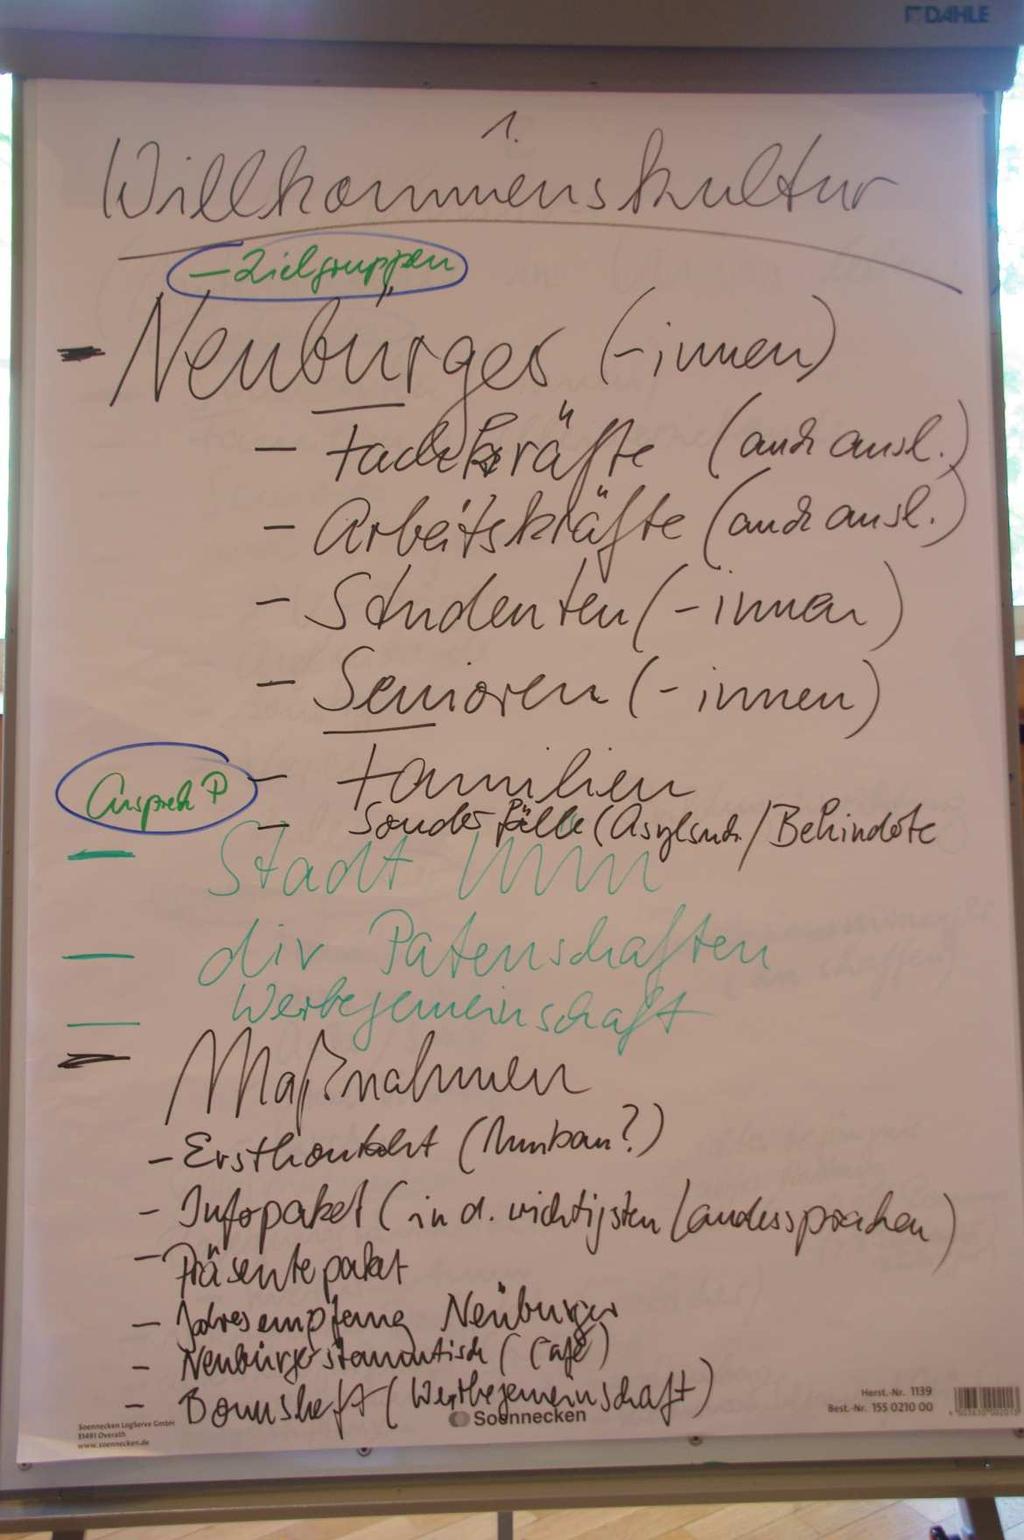 DAHLE
1.
Willkommenskultur
- Zielgruppen
- Neubürger (-innen)
- Fachkräfte (auch ausl.)
- Arbeitskräfte (auch ausl.)
- Studenten (-innen)
- Senioren (-innen)
- Familien
Ansprech P
- Sonderfälle (Asylsuch./Behinderte
- Stadt
- div Patenschaften
- Werbegemeinschaft
- Maßnahmen
- Erstkontakt
- Infopaket (in d. wichtigsten Landessprachen)
- Präsentepaket
- Jahresempfang Neubürger
- Neubürgerstammtisch (Café)
- Bonusheft (Werbegemeinschaft)
Soennecken LogServe GmbH
51491 Overath
www.soennecken.de
Soennecken
Herst.-Nr. 1139
Best.-Nr. 155 0210 00